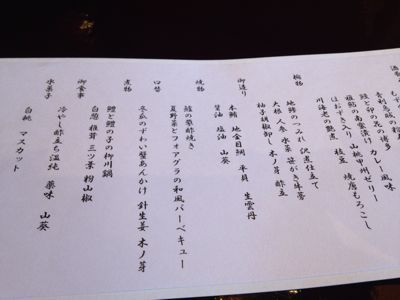 酒肴
青利烏賊の
鰻と卵の花の博多
鰯の南蛮漬け カレー風味
ほおずき入り 山桃甲州ゼリー
川海老の艶煮 枝豆 焼唐もろこし
椀物
地鱧のつみれ 沢煮仕立て
大根 人参 水菜 笹がき牛蒡
柚子胡椒卸し 木ノ芽 酢立
御造り
本鮪 地金目鯛 平貝 生雲丹
醤油 塩油 山葵
焼物
鱸の蓼酢焼き
夏野菜とフォアグラの和風バーベキュー
口替
冬瓜のずわい蟹あんかけ 針生姜 木ノ芽
煮物
鱧と鱧の子の柳川鍋
白葱 椎茸 三ツ葉 粉山椒
御食事
冷やし酢立ち温飩 薬味 山葵
水菓子
白桃 マスカット